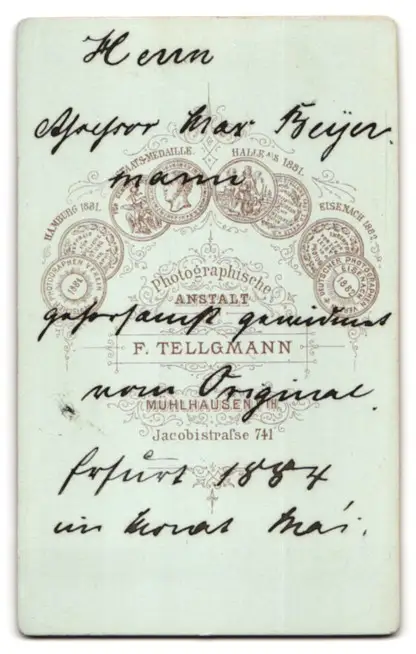 Herrn
Assessor Max Beyer-
mann
STAATS-MEDAILLE.
HALLE A/S 1881.
HAMBURG 1881.
EISENACH 1882.
PHOTOGRAPHEN VEREIN
1881
DEUTSCHER PHOTOGR.
Photographische
ANSTALT
gehorsamst gewidmet
F. TELLGMANN
vom Original.
MÜHLHAUSEN i/TH.
Jacobistraſse 741
Erfurt 1884
im Monat Mai.